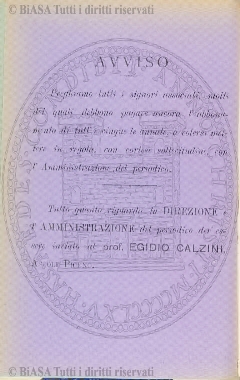 © BiASA Tutti i diritti riservati
AVVISO
Preghiamo tutti i signori associati, molti
dei quali debbono pagare ancora l'abbona-
mento di tutte cinque le annate, a volersi met-
tere in regola, con cortese sollecitudine, con
l'Amministrazione del periodico.
Tutto quanto riguarda la DIREZIONE e
l'AMMINISTRAZIONE del periodico dev'es-
sere inviato al prof. EGIDIO CALZINI,
© BiASA Tutti i diritti riservati